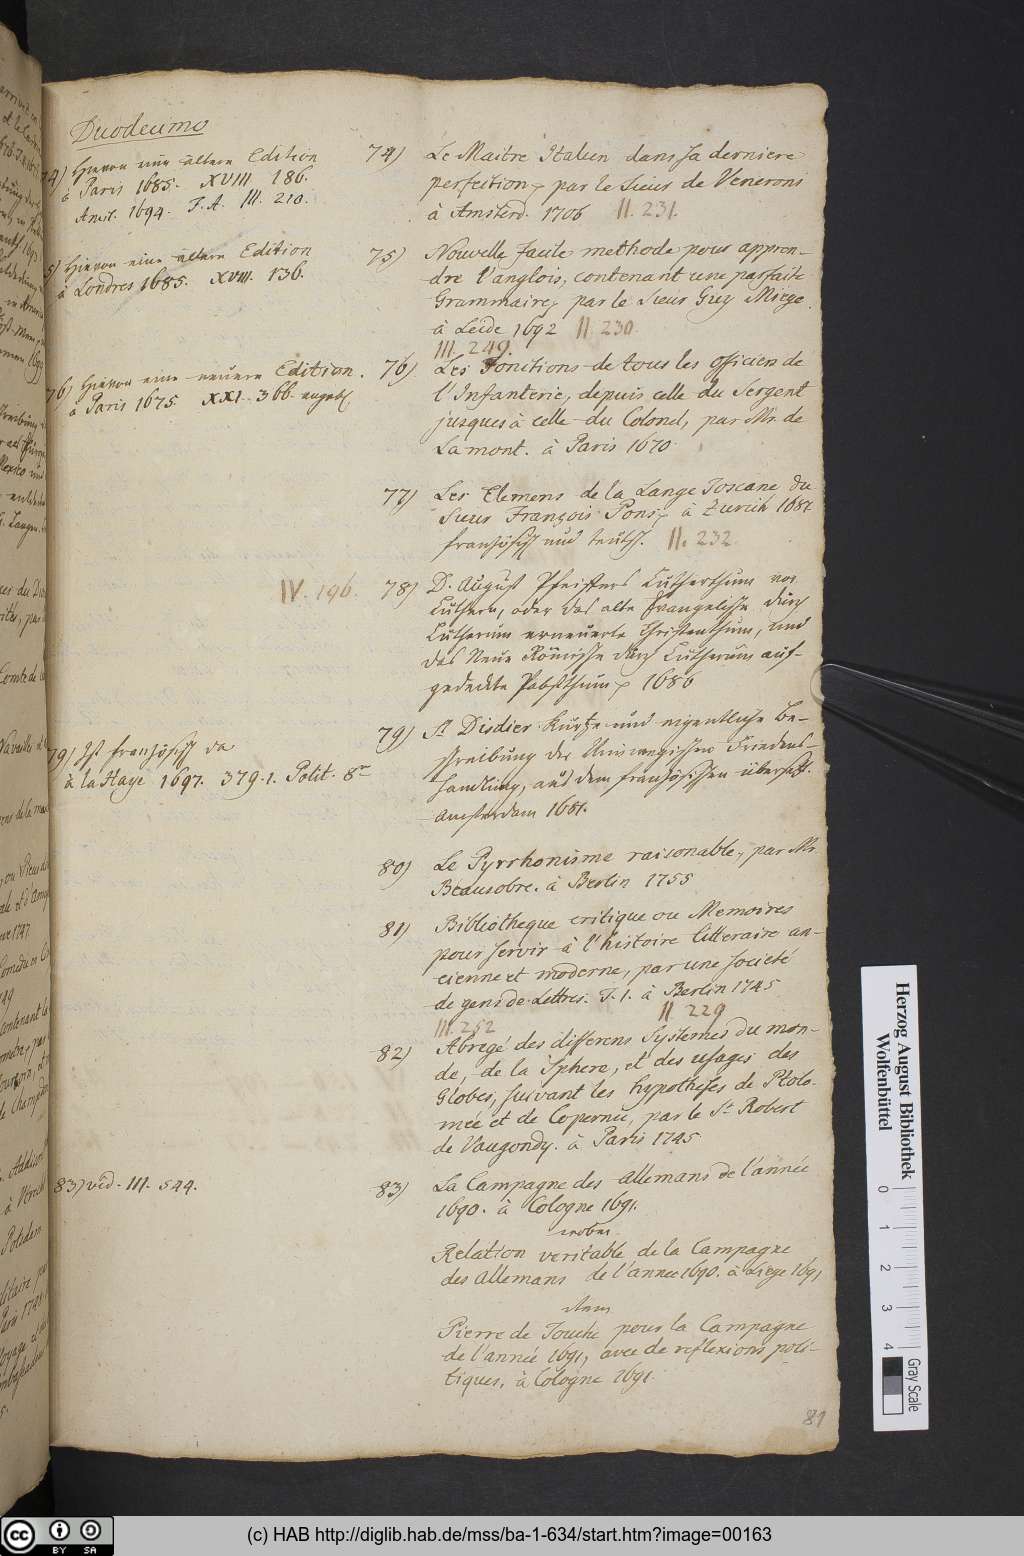 Duodecimo
74) Hievon eine ältere Edition
à Paris 1685. XVIII 186.
Amst. 1694. T. A. III. 210.
74) Le Maitre Italien dans sa derniere
perfection, par le Sieur de Veneroni
à Amsterd. 1706 II. 231.
75) Hievon eine ältere Edition
à Londres 1685. XVIII. 136.
75) Nouvelle facile methode pour appren-
dre l'anglois, contenant une parfaite
Grammaire, par le Sieur Guy Miege.
à Leide 1692 II. 230.
III. 249.
76) Hievon eine neuere Edition.
à Paris 1675. XXI. 366. angebl.
76) Les Fonctions de tous les officiers de
l'Infanterie, depuis celle du Sergent
jusques à celle du Colonel, par Mr. de
Lamont. à Paris 1670.
77) Les Elemens de la Lange Toscane du
Sieur François Pons, à Zurich 1687
französisch und teutsch. II. 232.
IV. 196.
78) D. August Pfeiffers Lutherthum vor
Luthern, oder das alte Evangelische durch
Lutherum erneuerte Christenthum, und
das Neue Römische durch Lutherum auf-
gedeckte Pabstthum, 1686
79) Ist französisch da
à la Haye 1697. 379.1. Polit. 8º
79) St Disdier kurtze und eigentliche Be-
schreibung der Nimwegischen Friedens-
handlung, aus dem französischen übersetzt.
Amsterdam 1681.
80) Le Pyrrhonisme raisonable, par Mr.
Beausobre. à Berlin 1755
81) Bibliotheque critique ou Memoires
pour servir à l'histoire litteraire an-
cienne et moderne, par une societé
de gens de Lettres. T. 1. à Berlin 1745
III. 252 II. 229
82) Abregé des differens Systemes du mon-
de, de la Sphere, et des usages des
Globes, suivant les hypotheses de Ptolo-
mée et de Copernic, par le Sr. Robert
de Vaugondy. à Paris 1745
83) vid. III. 544.
83) La Campagne des Allemans de l'année
1690. à Cologne 1691.
Relation veritable de la Campagne
des Allemans de l'année 1690. à Liege 1691
item
Pierre de Touche pour la Campagne
de l'année 1691, avec de reflexions poli-
tiques, à Cologne 1691.
81
Herzog August Bibliothek
Wolfenbüttel
0 1 2 3 4
Gray Scale
cc BY SA
(c) HAB http://diglib.hab.de/mss/ba-1-634/start.htm?image=00163